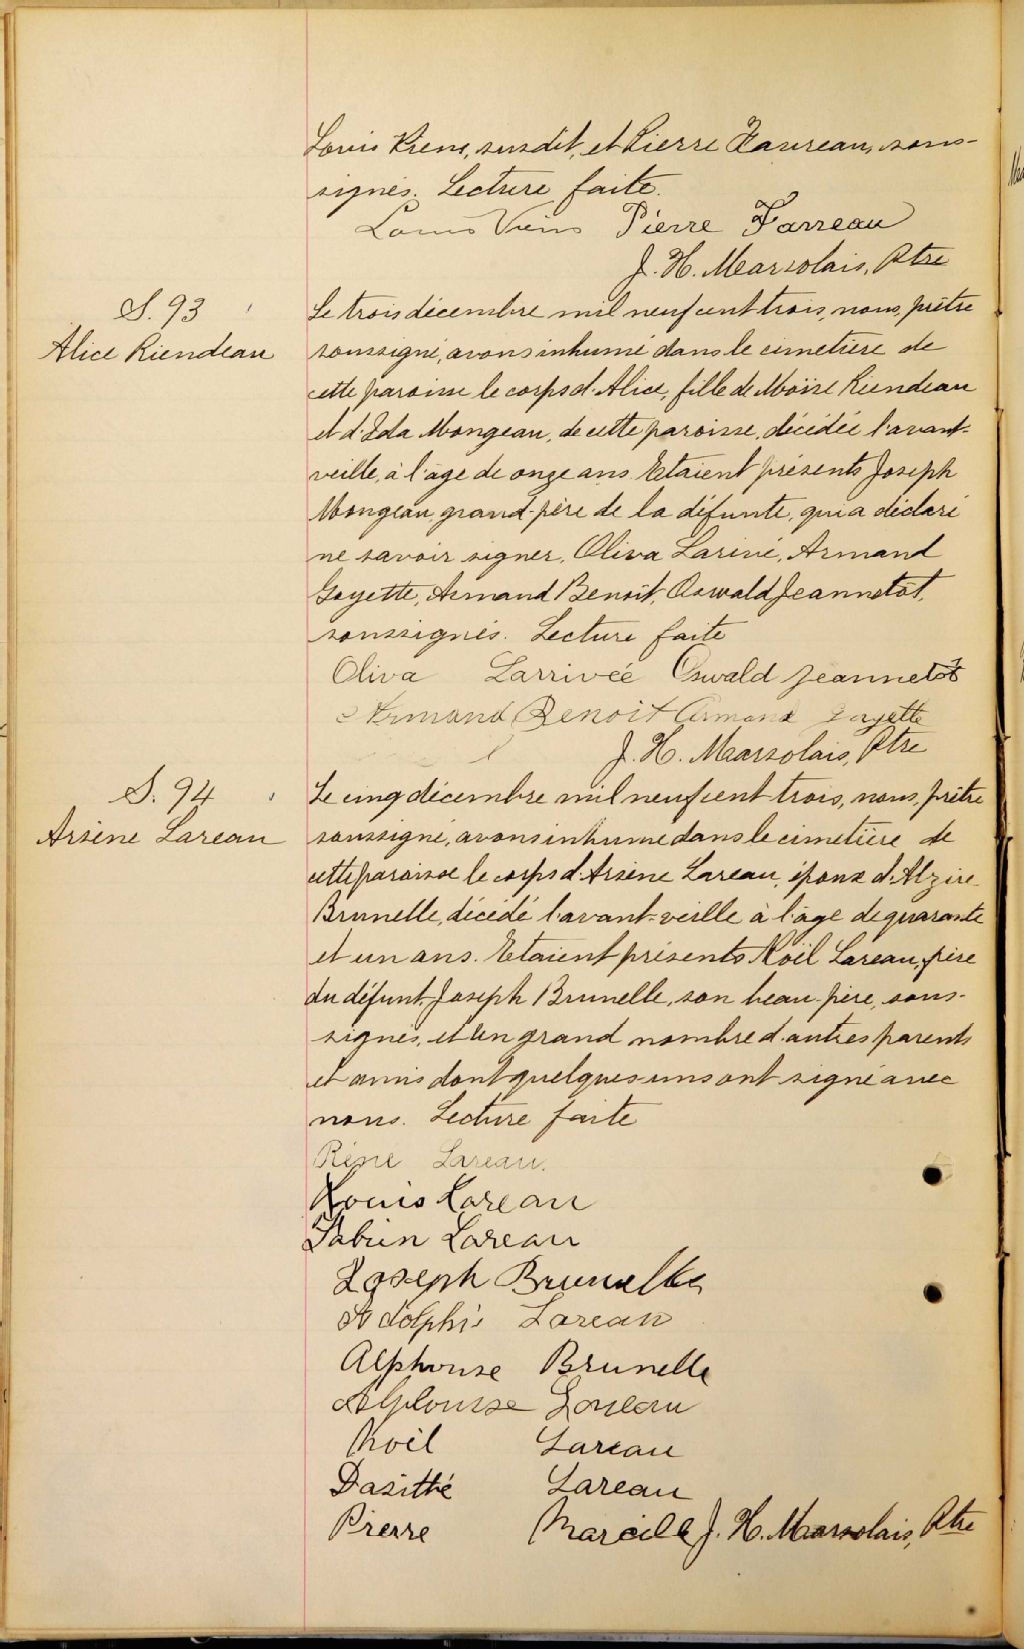 Louis Viens, susdit, et Pierre Favreau, sous-
signés. Lecture faite.
Louis Viens Pierre Favreau
J. H. Marsolais, Ptre
S. 93
Alice Riendeau
Le trois décembre mil neuf cent trois, nous, prêtre
soussigné, avons inhumé dans le cimetière de
cette paroisse le corps d'Alice, fille de Moïse Riendeau
et d'Eda Mongeau, de cette paroisse, décédée l'avant-
veille, à l'âge de onze ans. Etaient présents Joseph
Mongeau, grand-père de la défunte, qui a déclaré
ne savoir signer, Oliva Larivé, Armand
Goyette, Armand Benoit, Oswald Jeannotot,
soussignés. Lecture faite
Oliva Larrivée Oswald Jeannetot
Armand Benoit Armand Goyette
J. H. Marsolais, Ptre
S. 94
Arsène Lareau
Le cinq décembre mil neuf cent trois, nous, prêtre
soussigné, avons inhumé dans le cimetière de
cette paroisse le corps d'Arsène Lareau, époux d'Alzire
Brunelle, décédé l'avant-veille à l'âge de quarante
et un ans. Etaient présents Noël Lareau, père
du défunt, Joseph Brunelle, son beau-père, sous-
signés, et un grand nombre d'autres parents
et amis dont quelques-uns ont signé avec
nous. Lecture faite
Réné Lareau.
Louis Lareau
Fabien Lareau
Joseph Brunelle
Adolphis Lareau
Alphonse Brunelle
Alphonse Lareau
Noël Lareau
Dasithé Lareau
Pierre Marcille J. H. Marsolais, Ptre